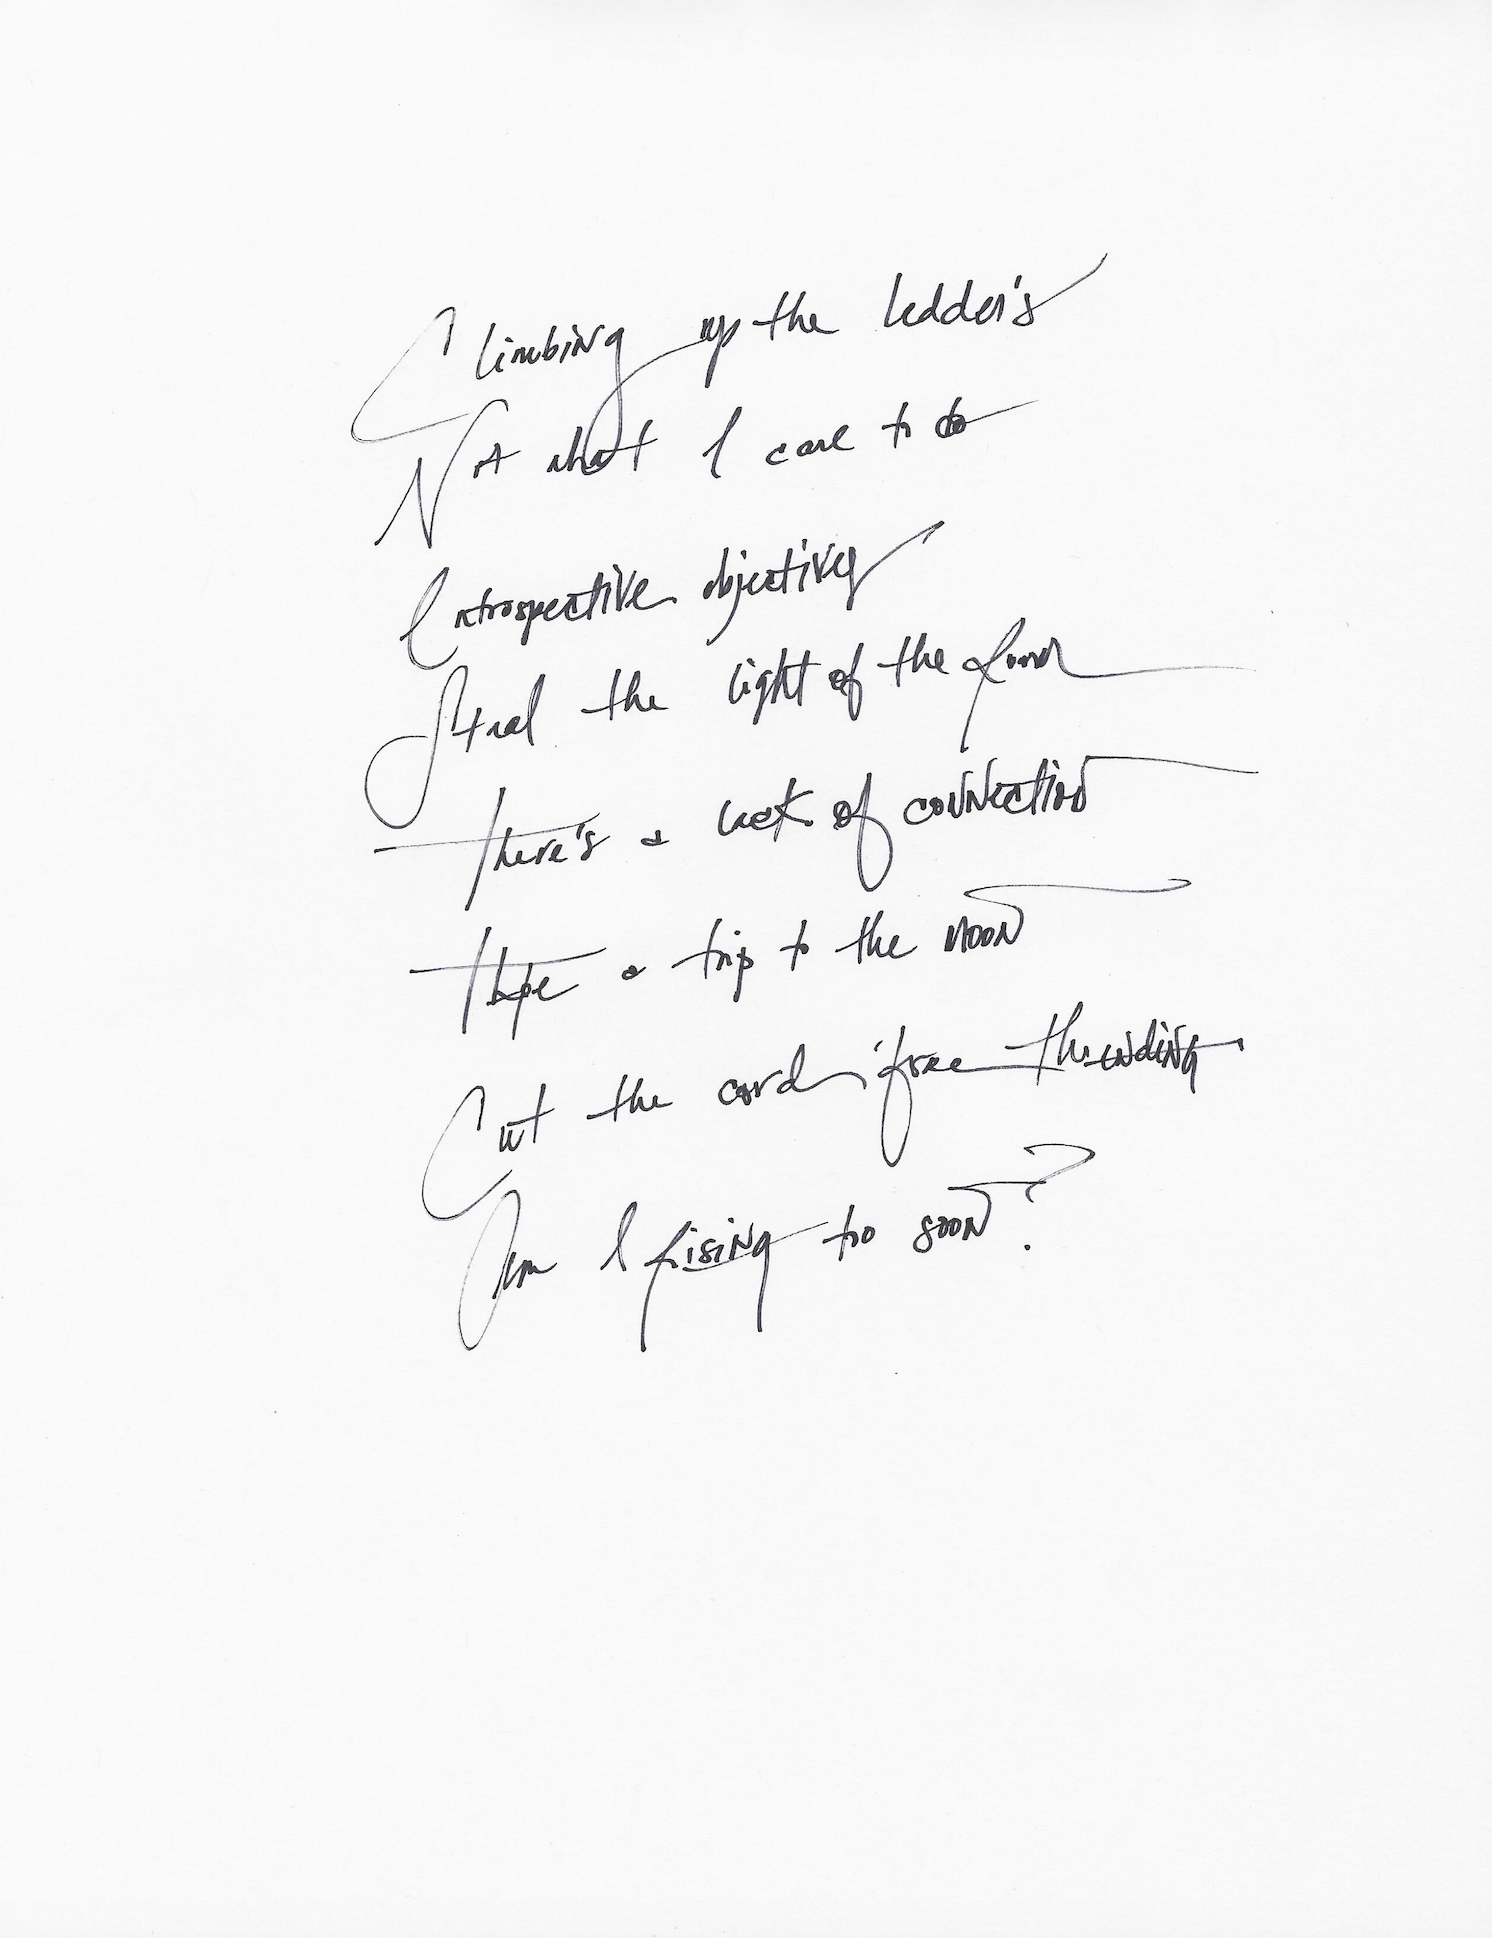 Climbing up the ladder's
Not what I care to do
Introspective objective
Steal the light of the
There's a lack of connection
a trip to the moon
Cut the cord, free the ending
Am I rising too soon?